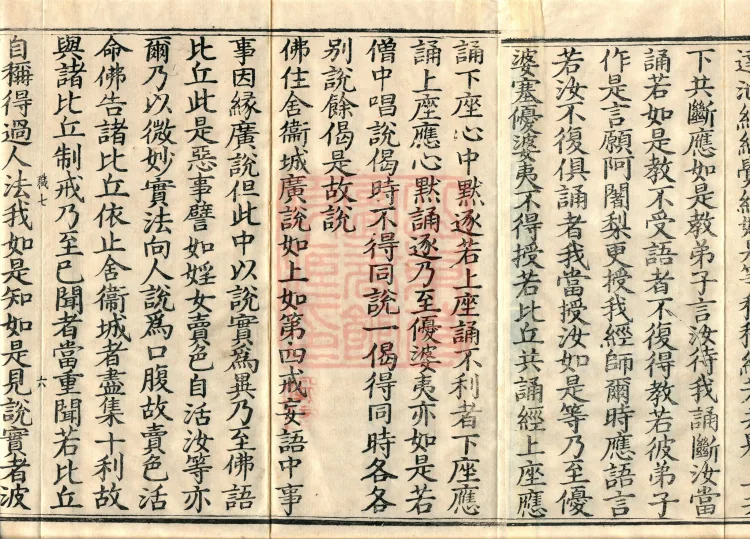 下共斷應如是教弟子言汝待我誦斷汝當
誦若如是教不受語者不復得教若彼弟子
作是言願阿闍梨更授我經師爾時應語言
若汝不復俱誦者我當授汝如是等乃至優
婆塞優婆夷不得授若比丘共誦經上座應
誦下座心中默逐若上座誦不利者下座應
誦上座應心默誦逐乃至優婆夷亦如是若
僧中唱說偈時不得同說一偈得同時各各
別說餘偈是故說
佛住舍衞城廣說如上如第四戒妄語中事
事因緣廣說但此中以說實爲異乃至佛語
比丘此是惡事譬如婬女賣色自活汝等亦
爾乃以微妙實法向人說爲口腹故賣色活
命佛告諸比丘依止舍衞城者盡集十利故
與諸比丘制戒乃至已聞者當重聞若比丘
七 六
自稱得過人法我如是知如是見說實者波